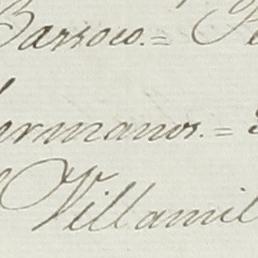 Barroso.=
ermanos.=
Villamil